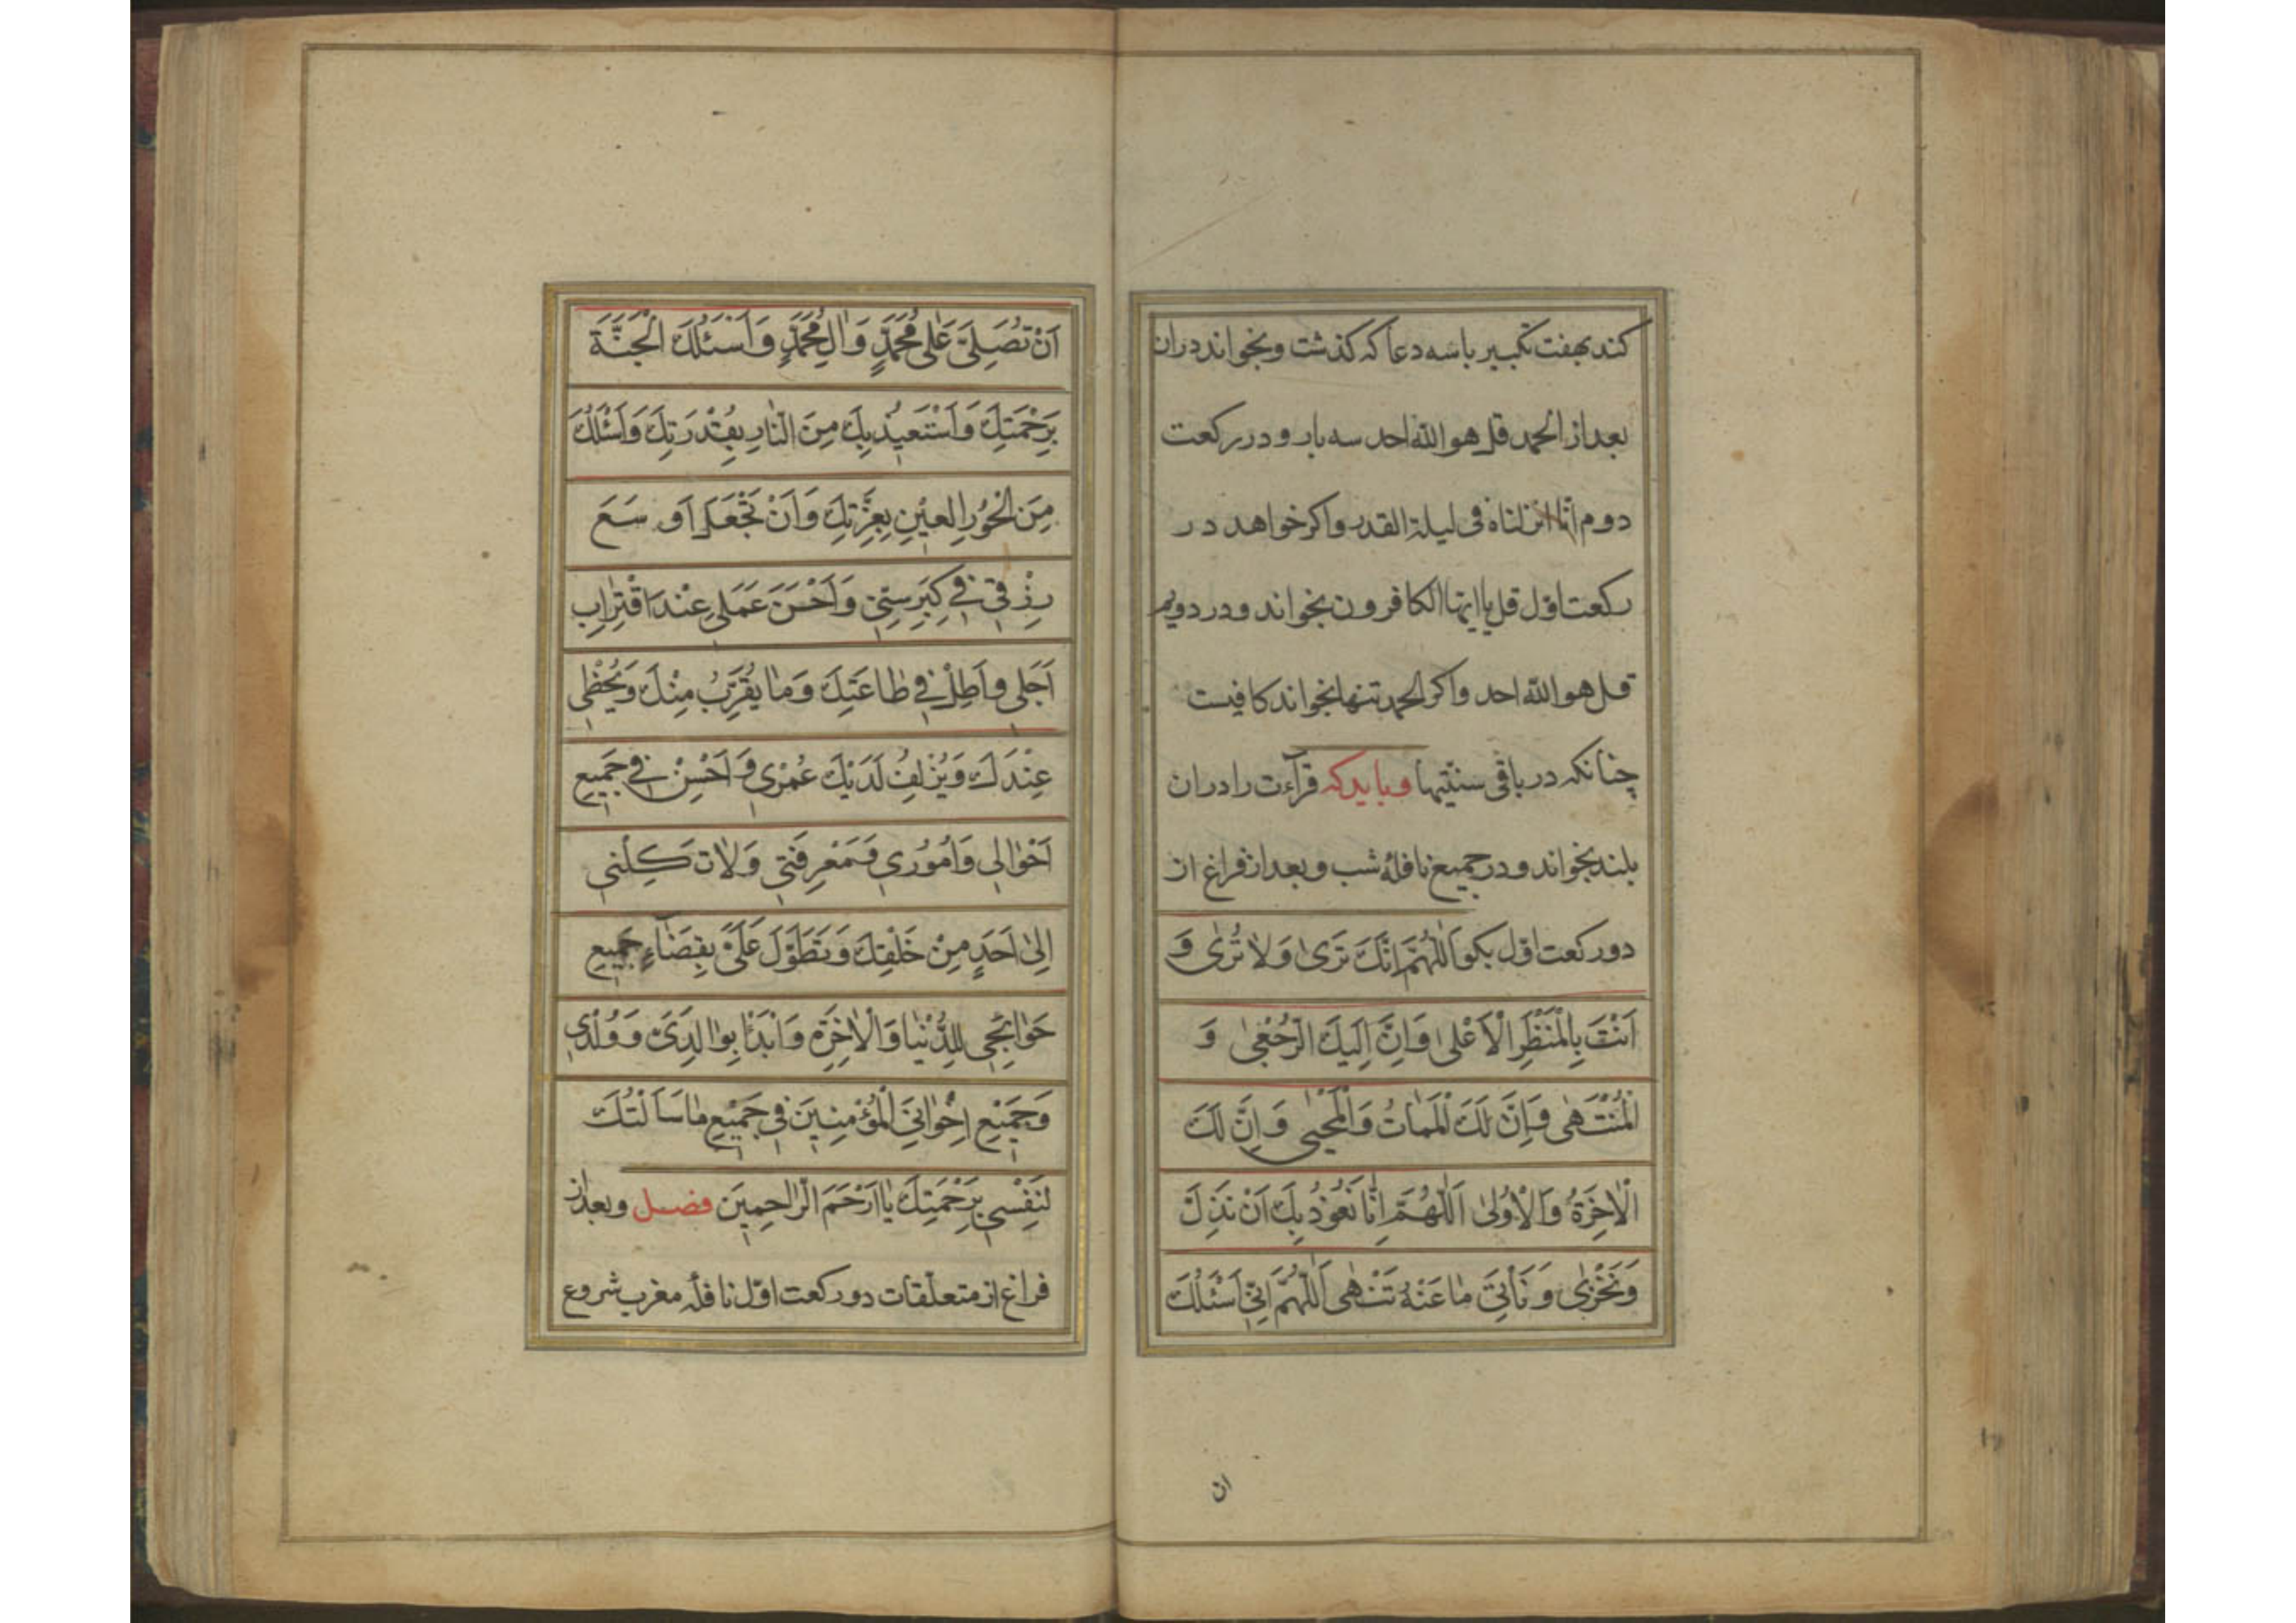 کند بهفت تکبیر باسه دعا که کذشت و بخواند دران
بعد از الحمد قل هو الله احد سه بار و در رکعت
دوم انّا انزلناه فی لیلة القدر و اکر خواهد در
رکعت اوّل قل یا ایها الکافرون بخواند و در دویم
قل هو الله احد و اکر الحمد تنها بخواند کافیست
چنانکه در باقی سنتیها و باید که قرآءت را دران
بلند بخواند و در جمیع نافلهٔ شب و بعد از فراغ از
دو رکعت اوّل بکو اَللّٰهُمَّ اِنَّكَ تَرىٰ وَلاٰ تُرىٰ وَ
اَنْتَ بِالْمَنْظَرِ الْاَعْلىٰ وَاِنَّ اِلَيْكَ الرُّجْعىٰ وَ
الْمُنْتَهىٰ وَاِنَّ لَكَ الْمَمٰاتُ وَالْمَحْيىٰ وَاِنَّ لَكَ
الْاٰخِرَةُ وَالْاُولىٰ اَللّٰهُمَّ اِنّٰا نَعُوذُ بِكَ اَنْ نَذِلَّ
وَنَخْزىٰ وَنَأْتِيَ مٰا عَنْهُ تَنْهىٰ اَللّٰهُمَّ اِنّي اَسْئَلُكَ
ان
اَنْ تُصَلِّيَ عَلىٰ مُحَمَّدٍ وَاٰلِ مُحَمَّدٍ وَاَسْئَلُكَ الْجَنَّةَ
بِرَحْمَتِكَ وَاَسْتَعيذُ بِكَ مِنَ النّٰارِ بِقُدْرَتِكَ وَاَسْئَلُكَ
مِنَ الْحُورِ الْعينِ بِعِزَّتِكَ وَاَنْ تَجْعَلَ اَوْسَعَ
رِزْقي في كِبَرِ سِنّي وَاَحْسَنَ عَمَلي عِنْدَ اقْتِرٰابِ
اَجَلي وَاَطِلْ في طٰاعَتِكَ وَمٰا يُقَرِّبُ مِنْكَ وَيُحْظي
عِنْدَكَ وَيُزْلِفُ لَدَيْكَ عُمْري وَاَحْسِنْ في جَميعِ
اَحْوٰالي وَاُمُوري وَمَعْرِفَتي وَلاٰ تَكِلْني
اِلىٰ اَحَدٍ مِنْ خَلْقِكَ وَتَطَوَّلْ عَلَيَّ بِقَضٰاءِ جَميعِ
حَوٰائِجي لِلدُّنْيٰا وَالْاٰخِرَةِ وَابْدَأْ بِوٰالِدَيَّ وَوُلْدي
وَجَميعِ اِخْوٰانِيَ الْمُؤْمِنينَ في جَميعِ مٰا سَاَلْتُكَ
لِنَفْسي بِرَحْمَتِكَ يٰا اَرْحَمَ الرّٰاحِمينَ فصل و بعد از
فراغ از متعلّقات دو رکعت اوّل نافله مغرب شروع